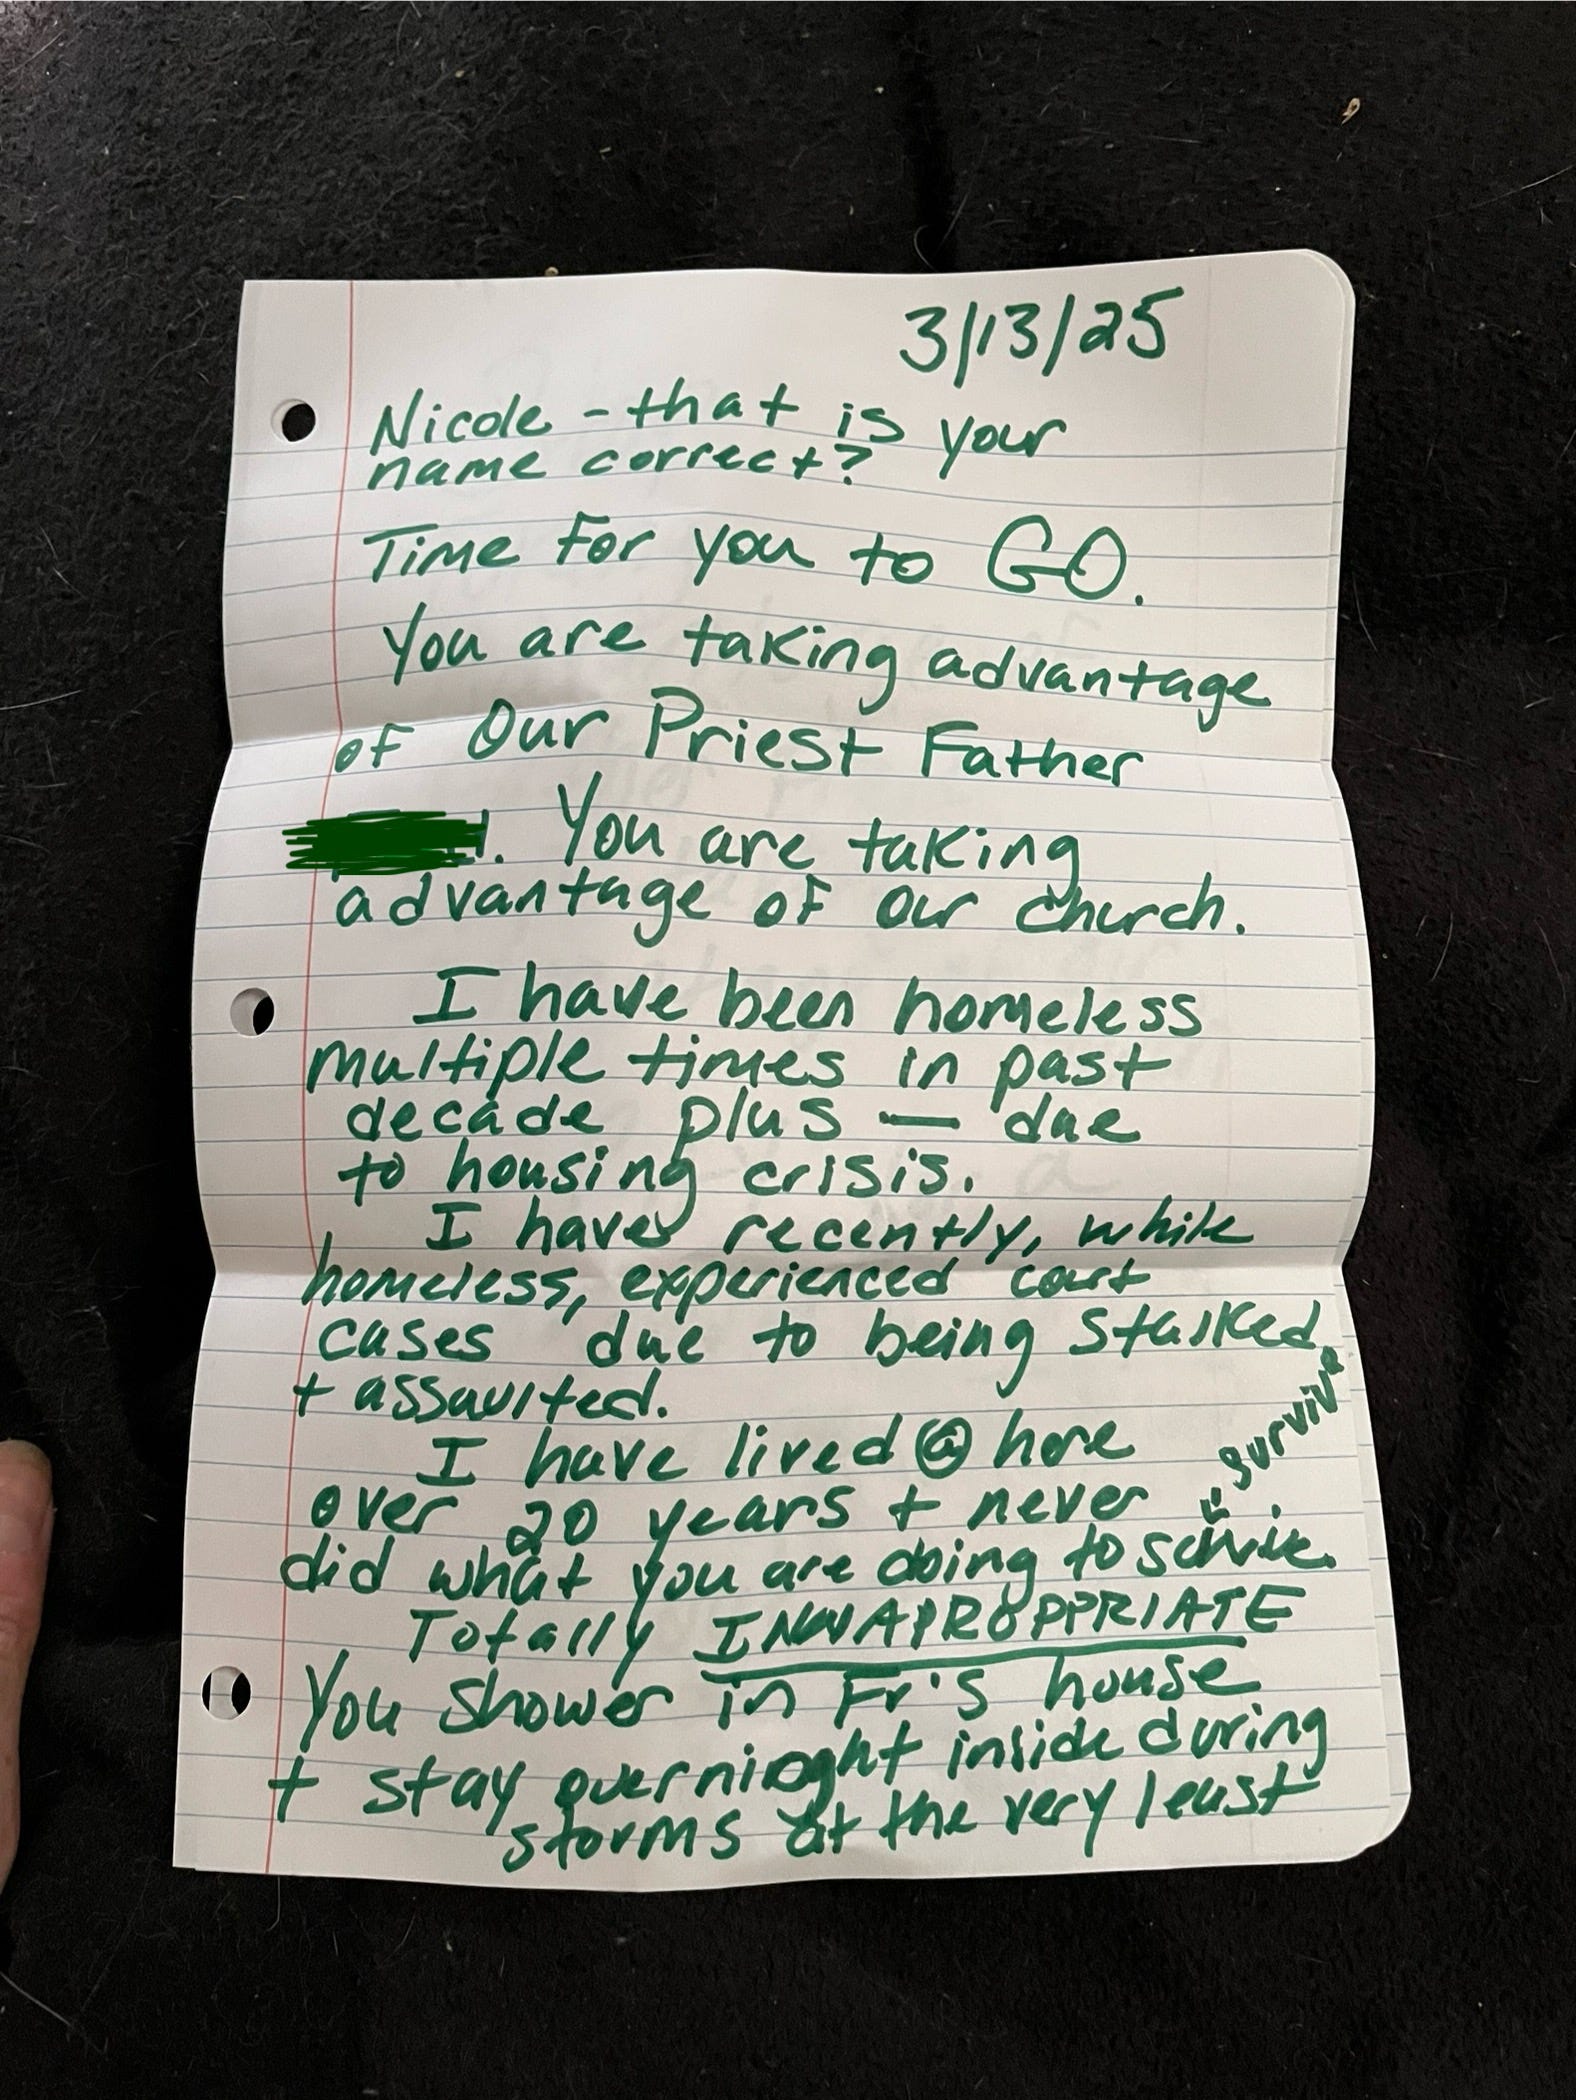 3/13/25
Nicole - that is your
name correct?
Time for you to GO.
You are taking advantage
of Our Priest Father
. You are taking
advantage of our church.
I have been homeless
multiple times in past
decade plus — due
to housing crisis.
I have recently, while
homeless, experienced court
cases due to being stalked
+ assaulted.
I have lived @ here
over 20 years + never
survive
did what you are doing to
Totally INNAPROPPRIATE
You shower in Fr's house
+ stay overnioght inside during
storms at the very least